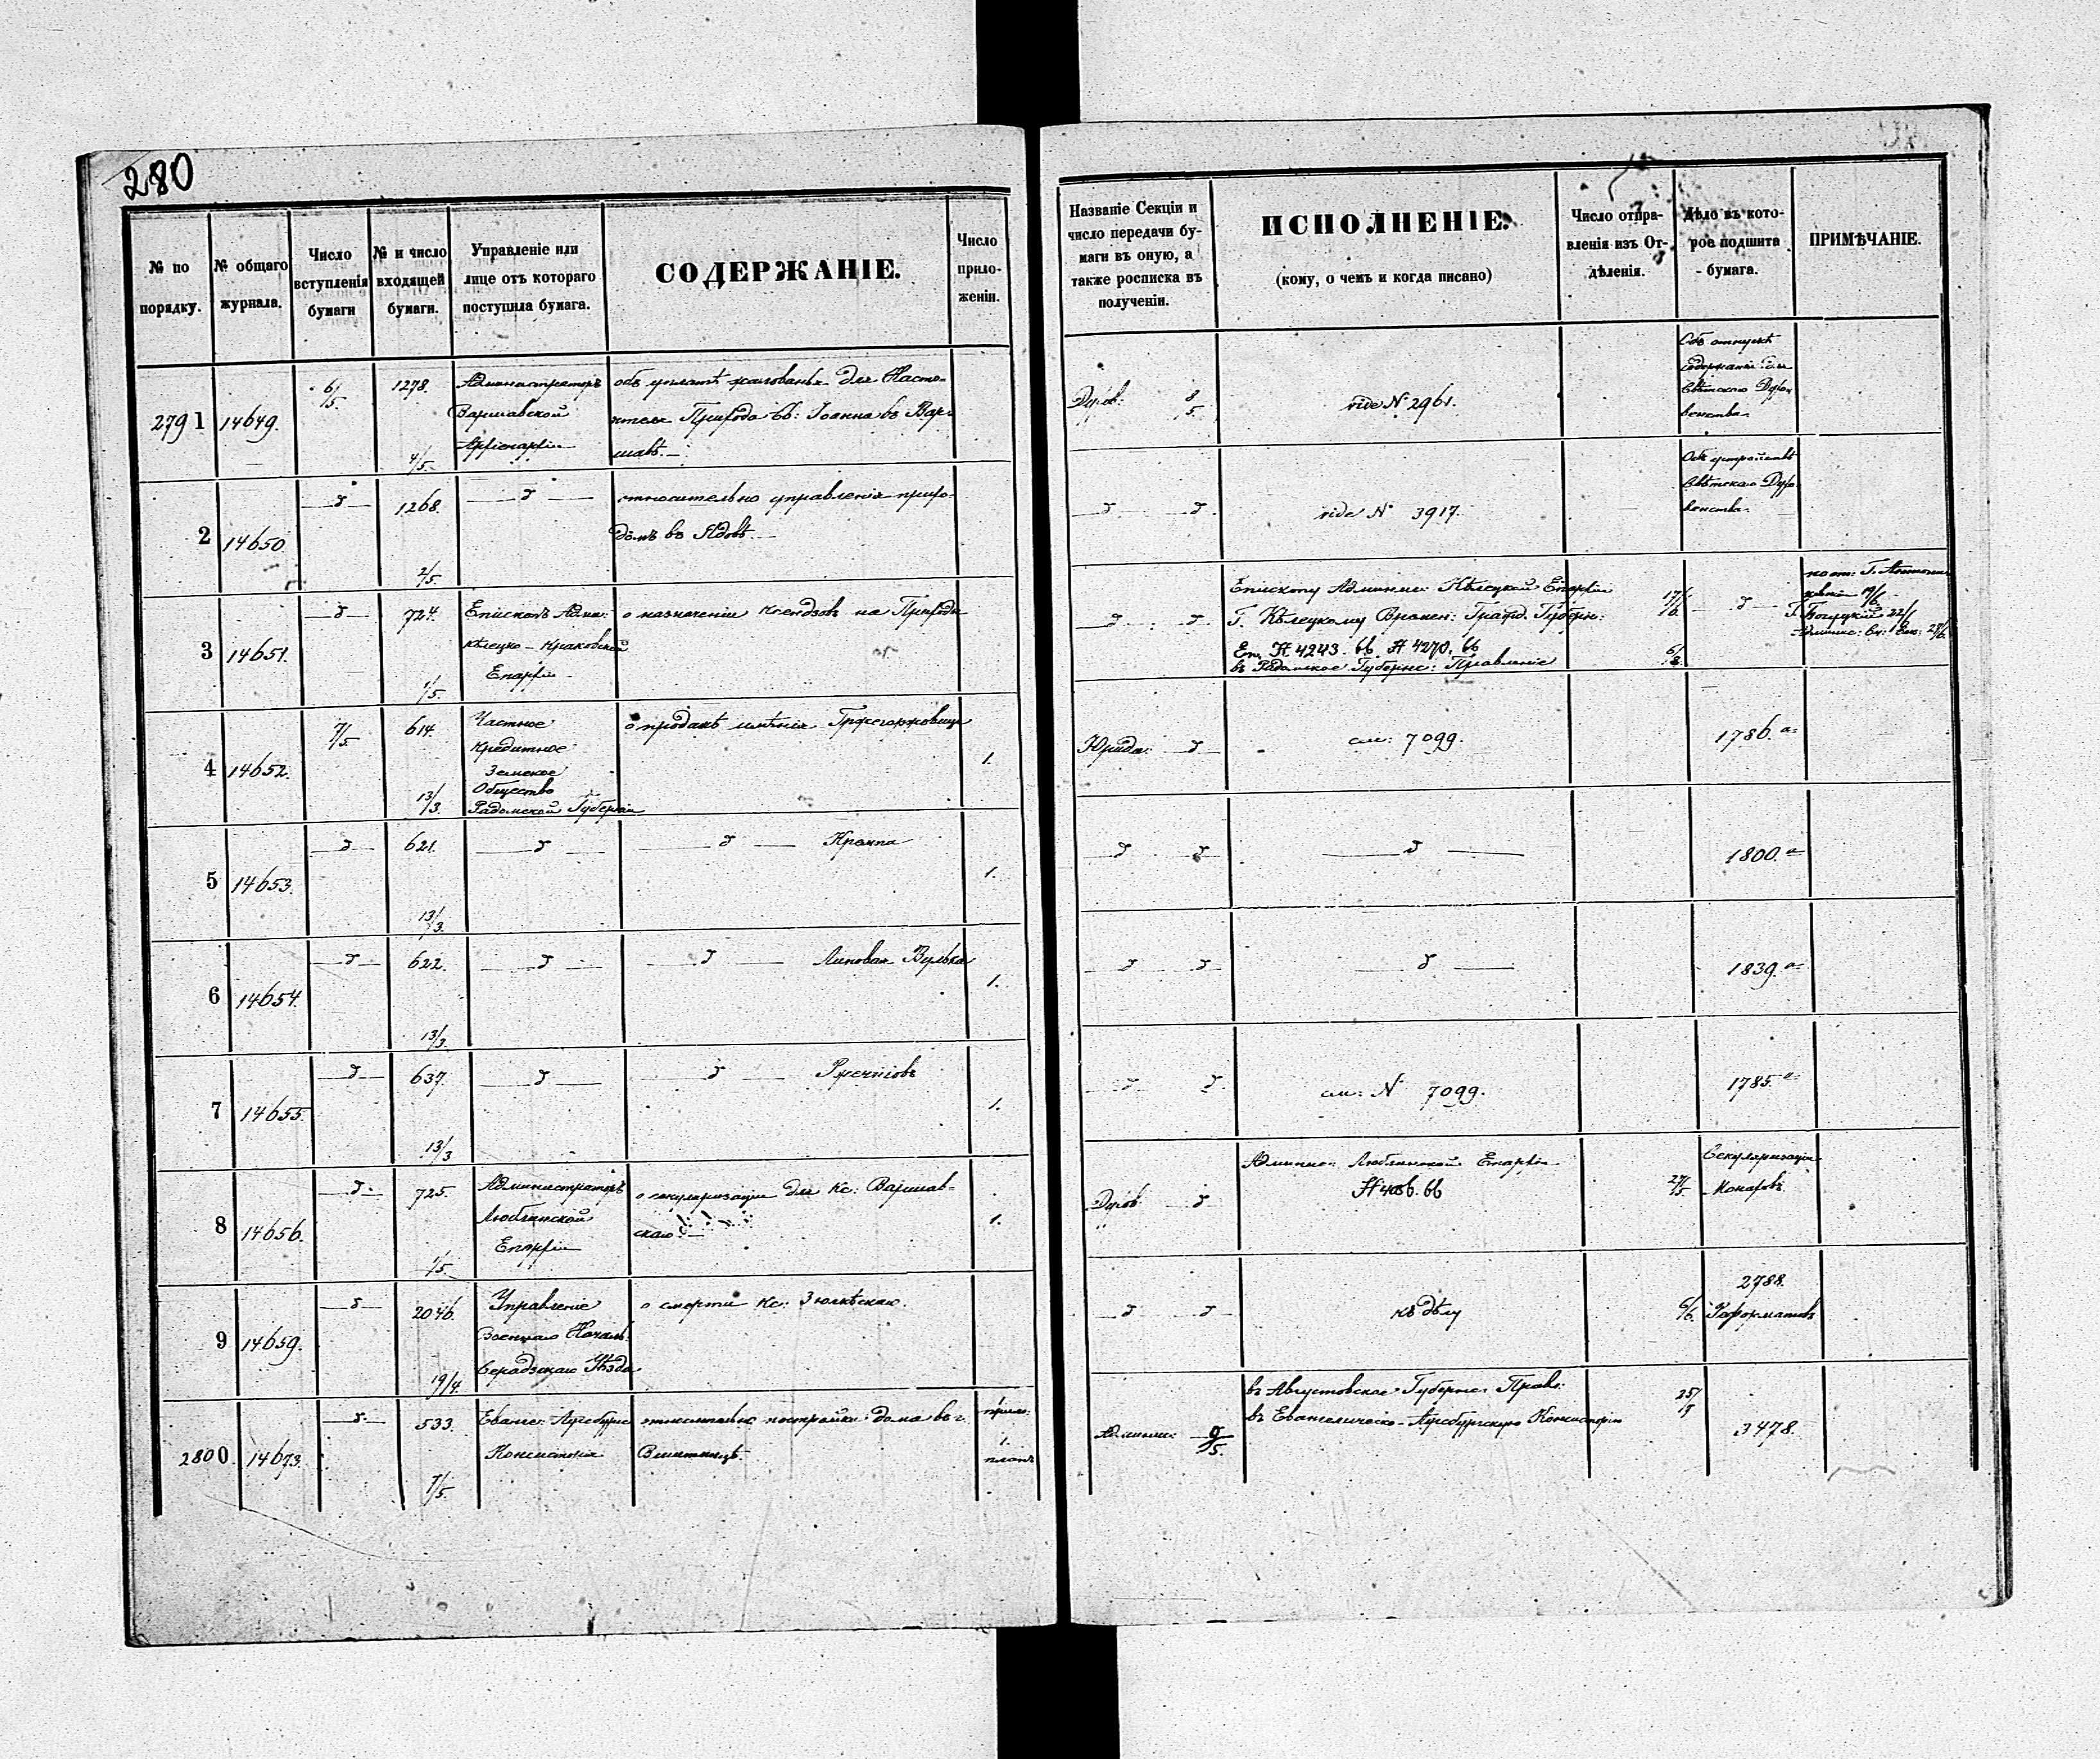 280
№ по порядку.
№ общаго журнала.
Число вступленія бумаги
№ и число входящей бумаги.
Управленіе или лице отъ котораго поступила бумага.
СОДЕРЖАНІЕ.
Число приложеніи.
Названіе Секціи и число передачи бумаги въ оную, а также росписка въ полученіи.
ИСПОЛНЕНІЕ.
(кому, о чемъ и когда писано)
Число отправленія изъ Отдѣленія.
Дѣло въ которое подшита бумага.
ПРИМѢЧАНІЕ.
2791 14649. 6/5. 1278. 4/5.
Администраторъ
Варшавской
Архіепархіи
объ уплатѣ жалованья для Насто-
ятеля Прихода Св: Іоанна въ Вар-
шавѣ.
Духов: 8/5
vide N 2961.
Объ отпускѣ
содержанія для
Свѣтскаго Духо
венства
2 14650 d 1268. 2/5. d
относительно управленія прихо-
домъ въ Ядовѣ
d d
vide N 3917.
Объ устройствѣ
Свѣтскаго Духо
венства
3 14651. d 724. 1/5.
Епископъ Адми:
Кѣлецко-Краковской
Епархіи
о назначеніи Ксендзовъ на Приходы
d d
Епископу Админи: Кѣлецкой Епархіи
Г. Кѣлецкому Времен: Гражд. Губерн:
№ 4243. 66 № 4270. 66
въ Радомское Губернс: Правленіе
17/6. 6/8.
d
4 14652. 7/5. 614. 13/3.
Частное
Кредитное
Земское
Общество
Радомской Губерніи
о продажѣ имѣнія Гржегоржовице
1.
Юрид: d
см: 7099.
1786. a
5 14653. d 621. 13/3. d d Кремпа 1.
d d d 1800. a
6 14654. d 622. 13/3. d d Липовая Вулька 1.
d d d 1839. a
7 14655. d 637. 13/3 d d Ржечніовъ 1.
d d
см: N 7099.
1785. a
8 14656. d 725. 1/5.
Администраторъ
Люблинской
Епархіи
о секуляризаціи для Кс: Варшав-
скаго
1.
Духов d
Админис: Люблинской Епархіи
27/5
Секуляризація
Монаховъ
9 14659. d 2046. 19/4.
Управленіе
Военнаго Началь:
Серадзскаго Уѣзда
о смерти Кс:
d d
къ дѣлу
6/6.
2788.
Реформатовъ
2800. 14673. d 533. 7/5.
Еванге: Аугсбургс
Консисторія
относительно постройки дома въ г.
Виштынцѣ.
1.
планъ
Админи: 9/5.
въ Августовское Губернс: Правл:
въ Евангелическо-Аугсбургскую Консисторію
3478.